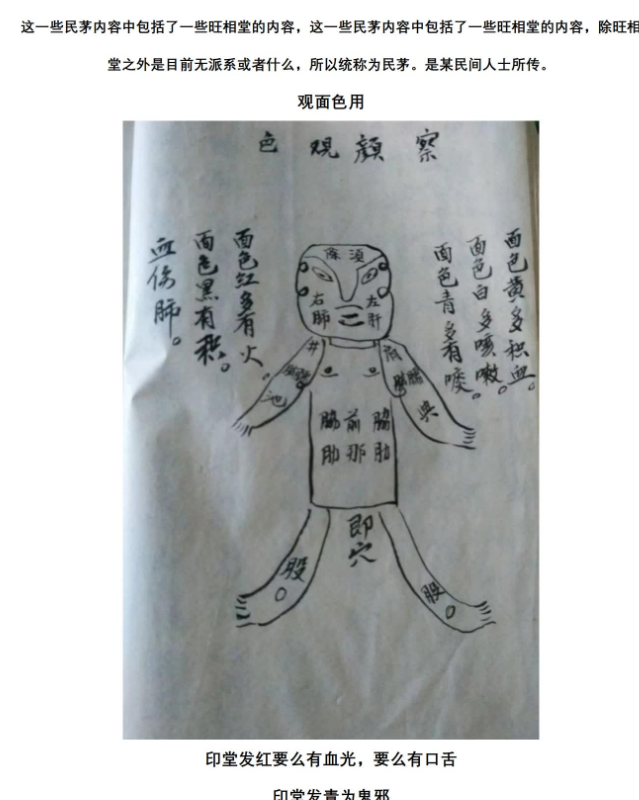 这一些民茅内容中包括了一些旺相堂的内容，这一些民茅内容中包括了一些旺相堂的内容，除旺相
堂之外是目前无派系或者什么，所以统称为民茅。是某民间人士所传。
观面色用
察顔观色
面色黄多积血。
面色白多咳嗽。
面色青多有
面色红多有火。
面色黑有积。
血伤肺。
右肺
左肝
井
池
胁前胁
肋那肋
即穴
股
股
印堂发红要么有血光，要么有口舌
印堂发青为鬼邪